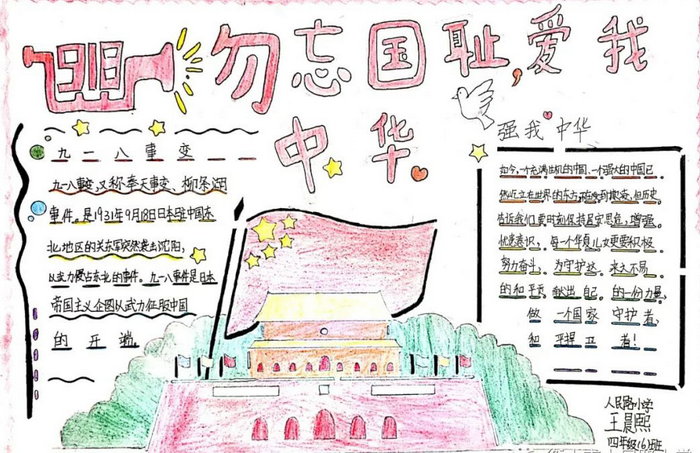 918
勿忘国耻,爱我
中华
九一八事变
九一八事变,又称奉天事变、柳条湖
事件。是1931年9月18日日本驻中国东
北地区的关东军突然袭击沈阳,
以武力侵占东北的事件。九一八事件是日本
帝国主义企图以武力征服中国
的开端
强我中华
如今,一个充满生机的中国、一个强大的中国已
然屹立在世界的东方,
告诉我们要时刻保持居安思危,增强
忧患意识,每一个华夏儿女更要积极
努力奋斗,为守护这来之不易
的和平贡献出自己的一份力量,
做一个国家守护者,
和平捍卫者!
人民路小学
王晨熙
四年级(6)班